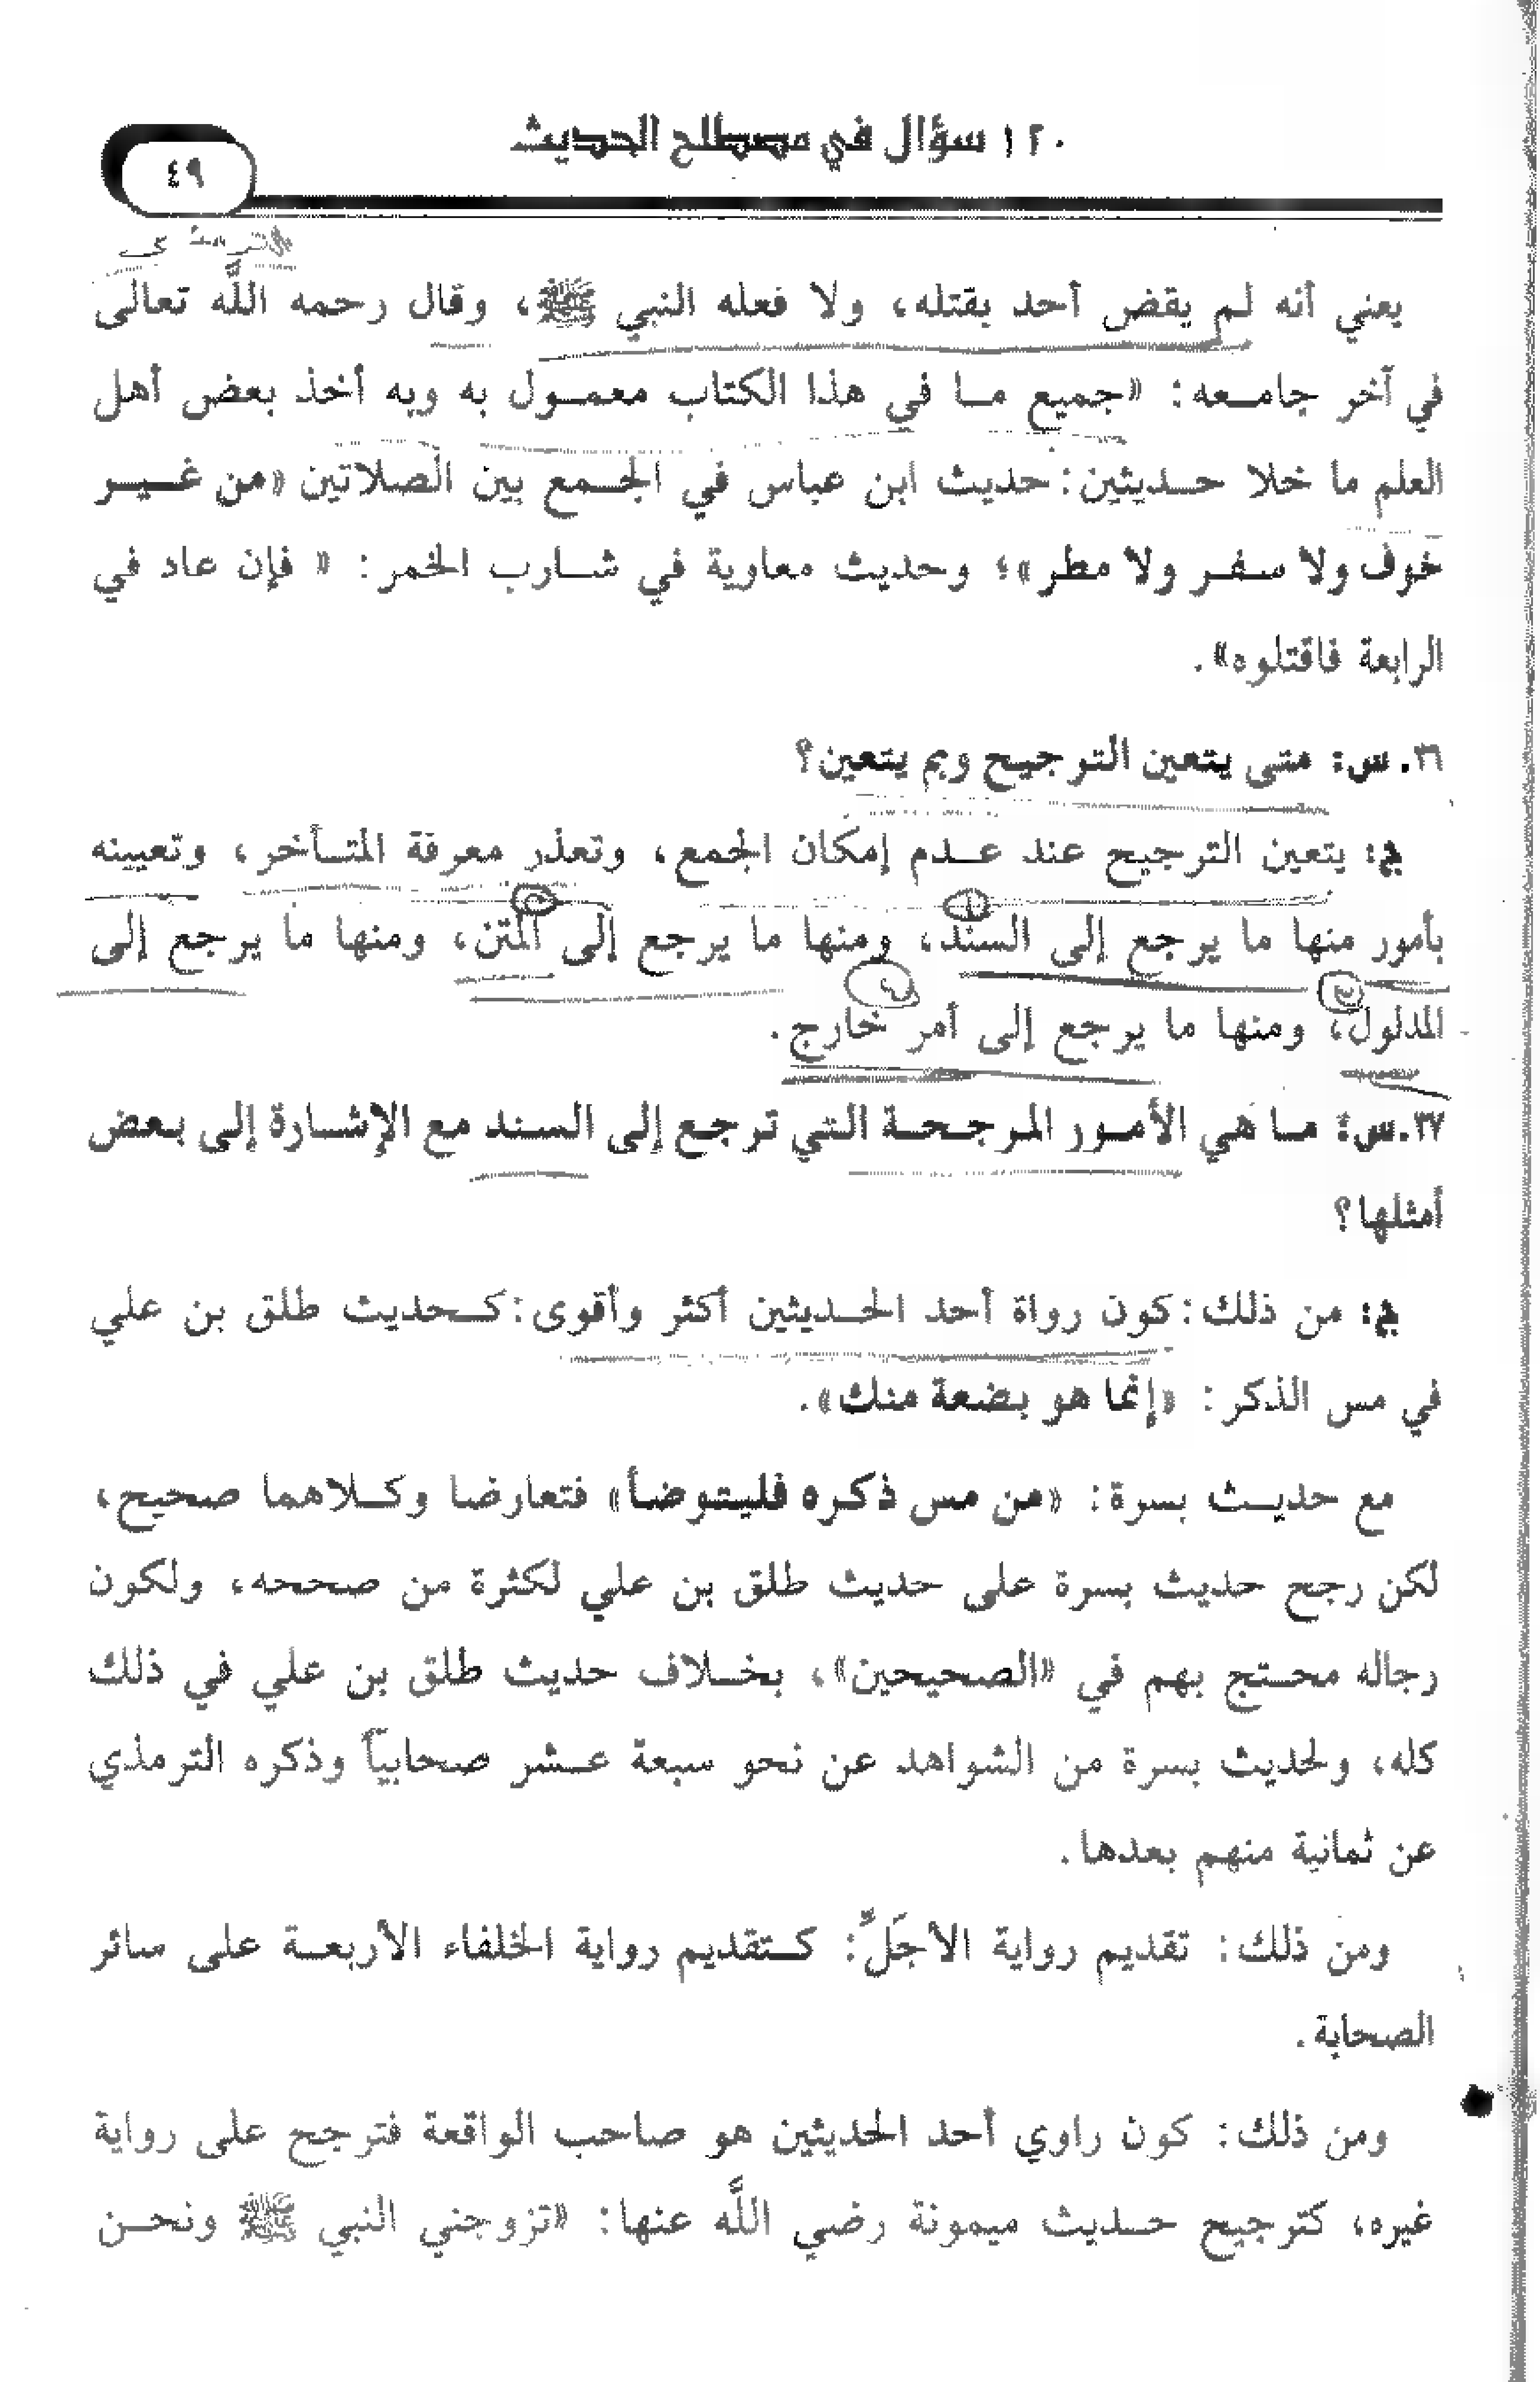 ١٢٠ سؤال في مصطلح الحديث
٤٩
الترمذي
يعني أنه لم يقض أحد بقتله، ولا فعله النبي ﷺ، وقال رحمه اللَّه تعالى
في آخر جامعه: «جميع ما في هذا الكتاب معمول به وبه أخذ بعض أهل
العلم ما خلا حديثين: حديث ابن عباس في الجمع بين الصلاتين «من غير
خوف ولا سفر ولا مطر»؛ وحديث معاوية في شارب الخمر: « فإن عاد في
الرابعة فاقتلوه».
٣٦. س: متى يتعين الترجيح وبم يتعين؟
ج: يتعين الترجيح عند عدم إمكان الجمع، وتعذر معرفة المتأخر، وتعيينه
بأمور منها ما يرجع إلى السند، ومنها ما يرجع إلى المتن، ومنها ما يرجع إلى
المدلول، ومنها ما يرجع إلى أمر خارج.
٣٧.س: ما هي الأمور المرجحة التي ترجع إلى السند مع الإشارة إلى بعض
أمثلها؟
ج: من ذلك: كون رواة أحد الحديثين أكثر وأقوى: كحديث طلق بن علي
في مس الذكر: «إنما هو بضعة منك».
مع حديث بسرة: «من مس ذكره فليتوضأ» فتعارضا وكلاهما صحيح،
لكن رجح حديث بسرة على حديث طلق بن علي لكثرة من صححه، ولكون
رجاله محتج بهم في «الصحيحين»، بخلاف حديث طلق بن علي في ذلك
كله، ولحديث بسرة من الشواهد عن نحو سبعة عشر صحابياً وذكره الترمذي
عن ثمانية منهم بعدها.
ومن ذلك: تقديم رواية الأجَلِّ: كتقديم رواية الخلفاء الأربعة على سائر
الصحابة.
ومن ذلك: كون راوي أحد الحديثين هو صاحب الواقعة فترجح على رواية
غيره، كترجيح حديث ميمونة رضي اللَّه عنها: «تزوجني النبي ﷺ ونحن